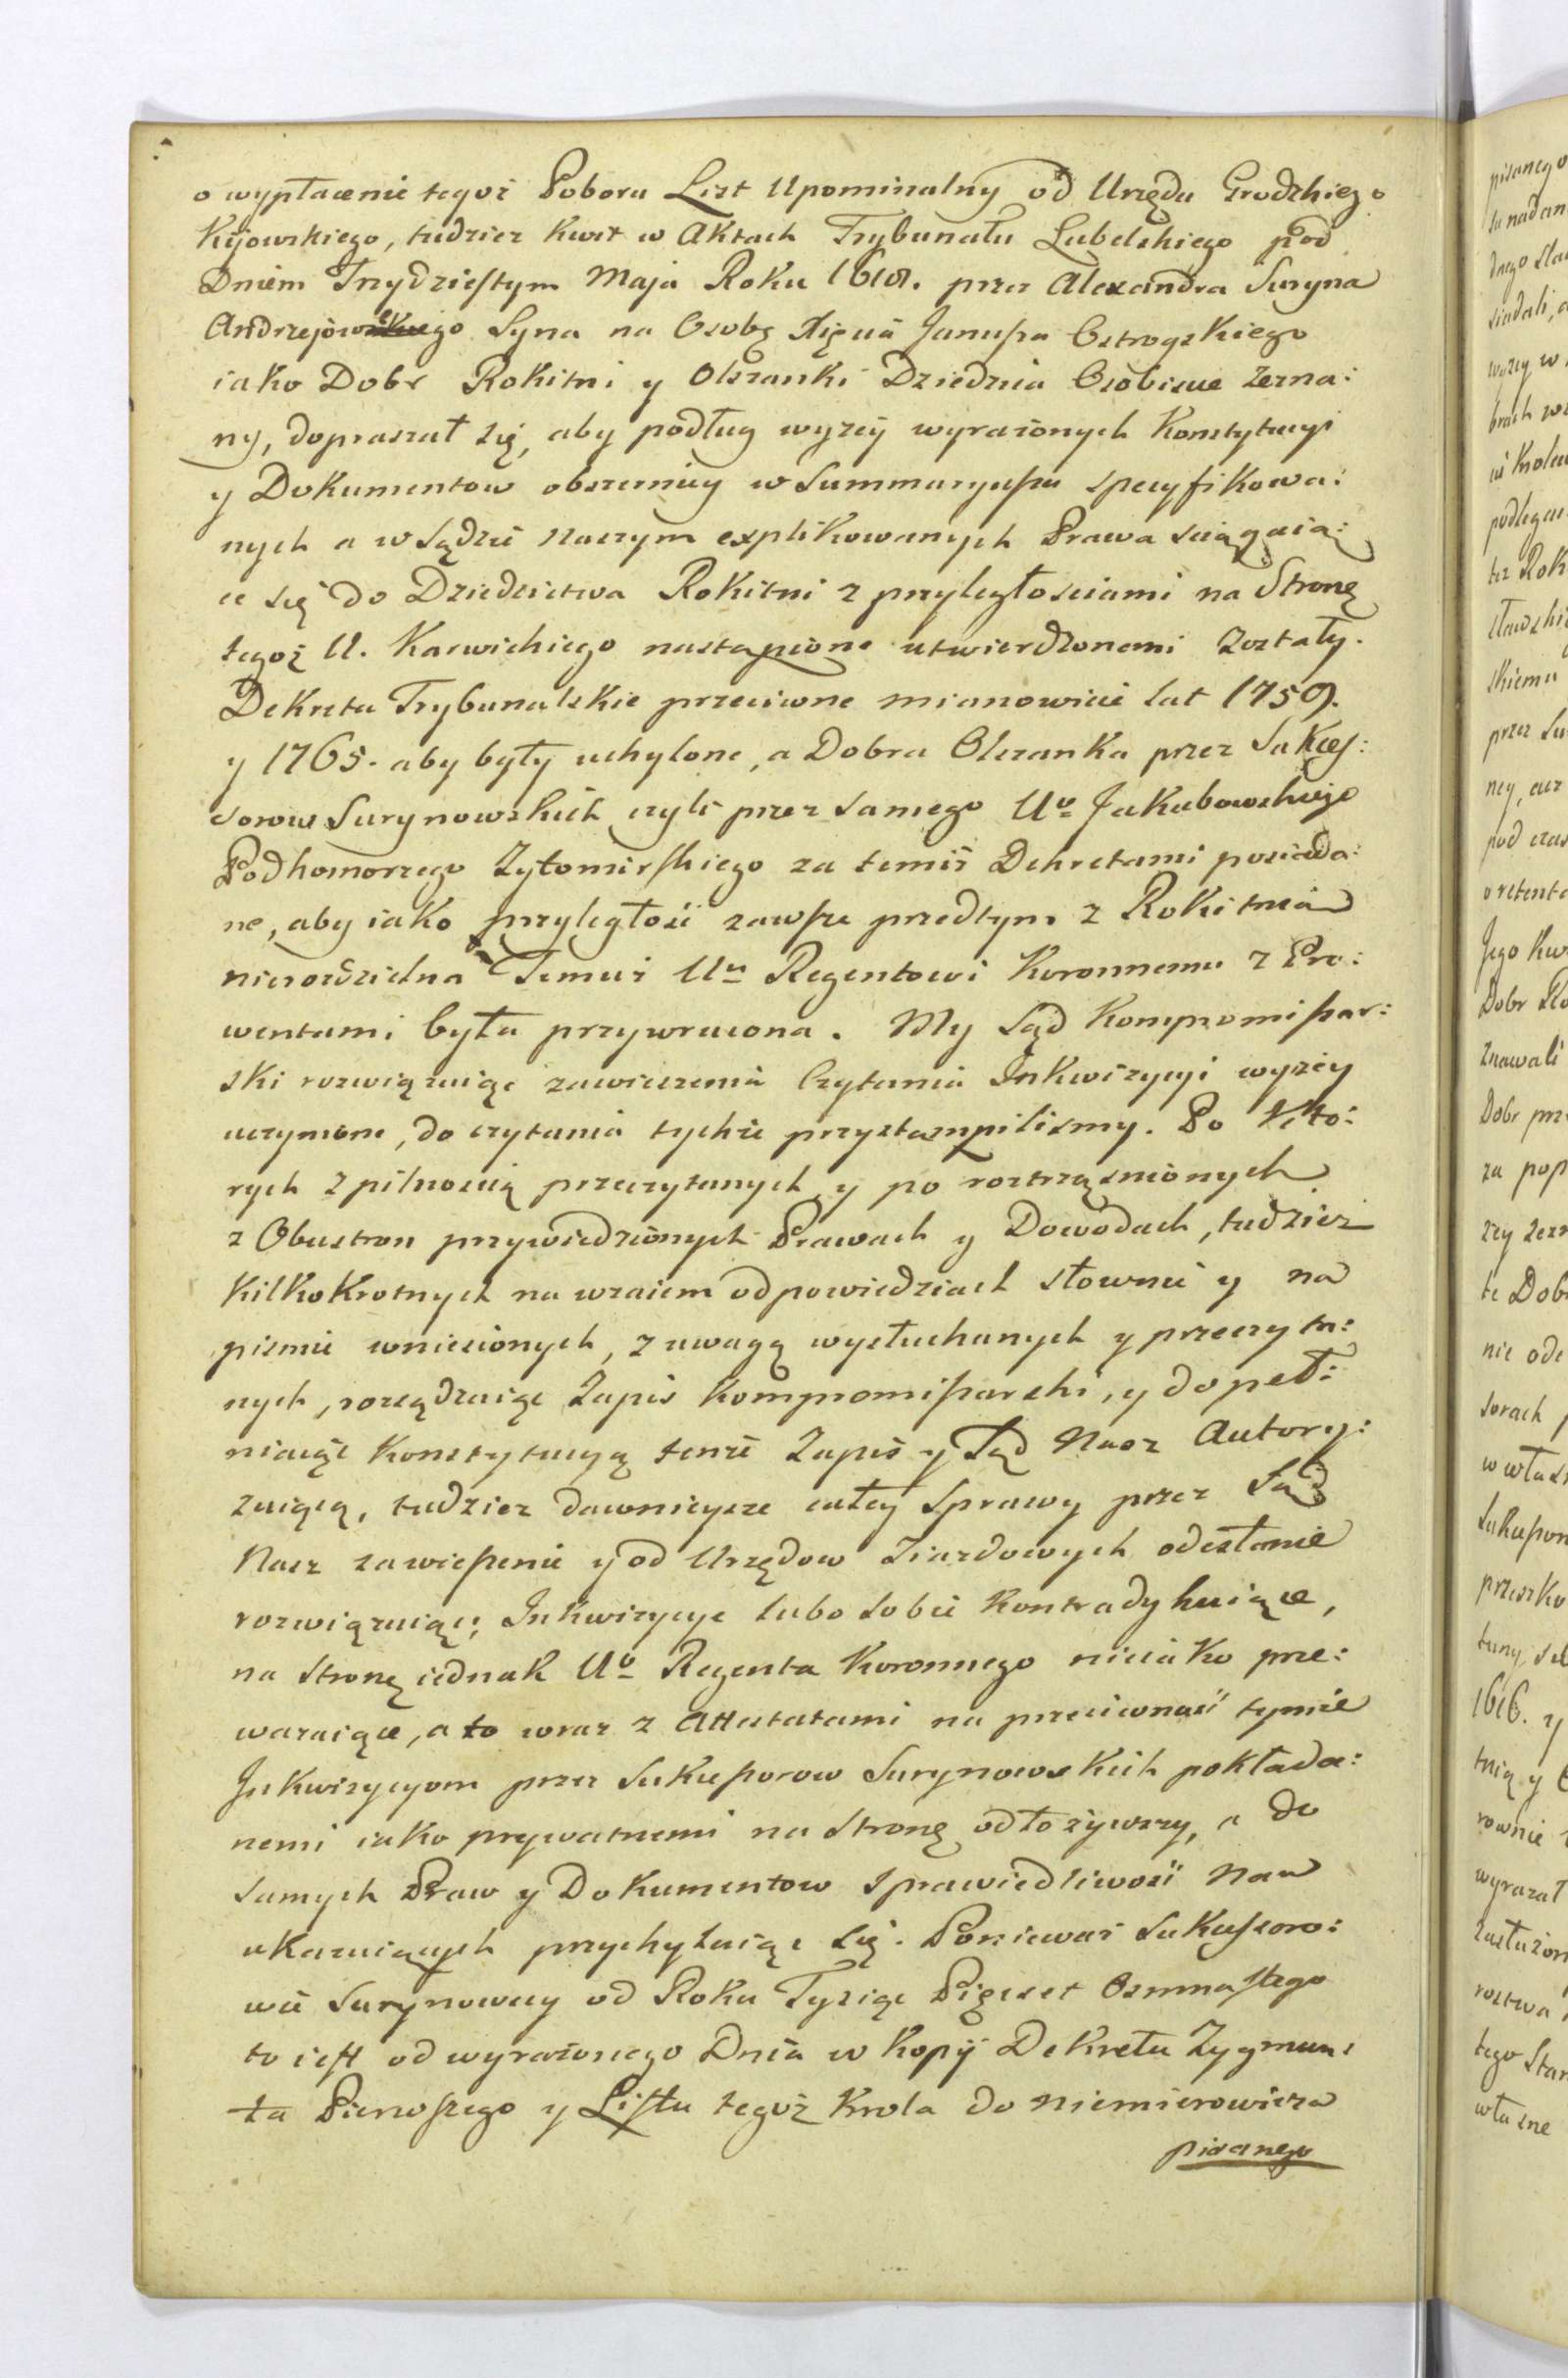 o wypłacenie tegoż Poboru List Upominalny od Urzędu Grodzkiego
Kijowskiego, tudziez Kwit w Aktach Trybunału Lubelskiego pod
Dniem Trzydziestym Maja Roku 1618. przez Alexandra Suryna
Andrzejowego Syna na Osobę Xięcia Janusza Ostrogskiego
iako Dobr Rokitni y Olszanki Dziedzica Osobiscie zezna:
ny, dopraszał się, aby podług wyzey wyrażonych Konstytucyi
y Dokumentow obszerniey w Summaryuszu specyfikowa:
nych a w Sądzie Naszym explikowanych Prawa sciągaią:
ce się do Dziedzictwa Rokitni z przyległosciami na Stronę
tegoż U. Karwickiego nastąpione utwierdzonemi zostały.
Dekreta Trybunalskie przeciwne mianowicie lat 1759.
y 1765. aby były uchylone, a Dobra Olszanka przez Sukces:
sorow Surynowskich czyli przez samego Uo Jakubowskiego
Podkomorzego Zytomirskiego za temiż Dekretami posiada:
ne, aby iako przyległość zawsze przedtym z Rokitnią
nierozdzielna Temuż Un Regentowi Koronnemu z Pro:
wentami była przywrucona. My Sąd Kompromissar:
ski rozwiązuiąc zawieszenia Czytania Inkwizycyi wyzey
uczynione, do czytania tychże przystampilismy. Po Kto:
rych z pilnoscią przeczytanych y po roztrząsnionych
z Obustron przywiedzionych Prawach y Dowodach, tudziez
Kilkokrotnych na wzaiem odpowiedziach słownie y na
pismie wniesionych, z uwagą wysłuchanych y przeczyta:
nych, rozsądzaiąc Zapis Kompromissarski, y dopeł:
niaiąc Konstytucyą tenże Zapis y Sąd Nasz Autory:
zuiącą, tudziez dawnieysze całey Sprawy przez Sąd
Nasz zawieszenie y od Urzędow Ziazdowych odesłanie
rozwiązuiąc; Inkwizycye lubo sobie Kontradykuiące,
na Stronę iednak Uo Regenta Koronnego nieiako prze:
wazaiące, a to wraz z Attestatami na przeciwność tymże
Inkwizycyom przez Sukcessorow Surynowskich pokłada:
nemi iako prywatnemi na Stronę odłożywszy, a do
samych Praw y Dokumentow sprawiedliwość Nam
ukazuiących przychylaiąc się. Poniewaz Sukcessoro:
wie Surynowscy od Roku Tysiąc Pięcset Osmnastego
to iest od wyrażonego Dnia w Kopij Dekretu Zygmun:
ta Pierwszego y Listu tegoż Krola do Niemierowicza
pisanego